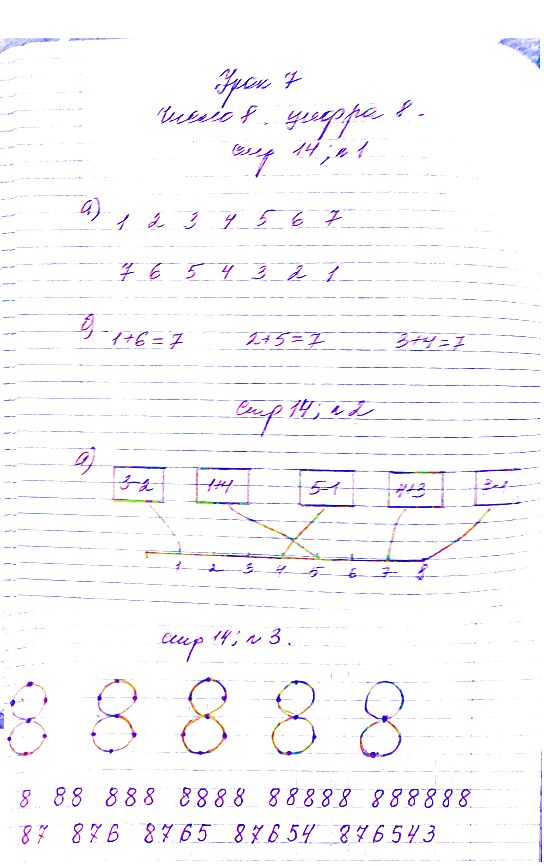 Урок 7
Число 8. цифра 8.
стр 14; №1
а) 1 2 3 4 5 6 7
7 6 5 4 3 2 1
1+6=7 2+5=7 3+4=7
стр 14; №2
а)
3-2 1+4 5-1 4+3
1 2 3 4 5 6 7 8
стр 14; №3.
8 88 888 8888 88888 888888
87 876 8765 87654 876543